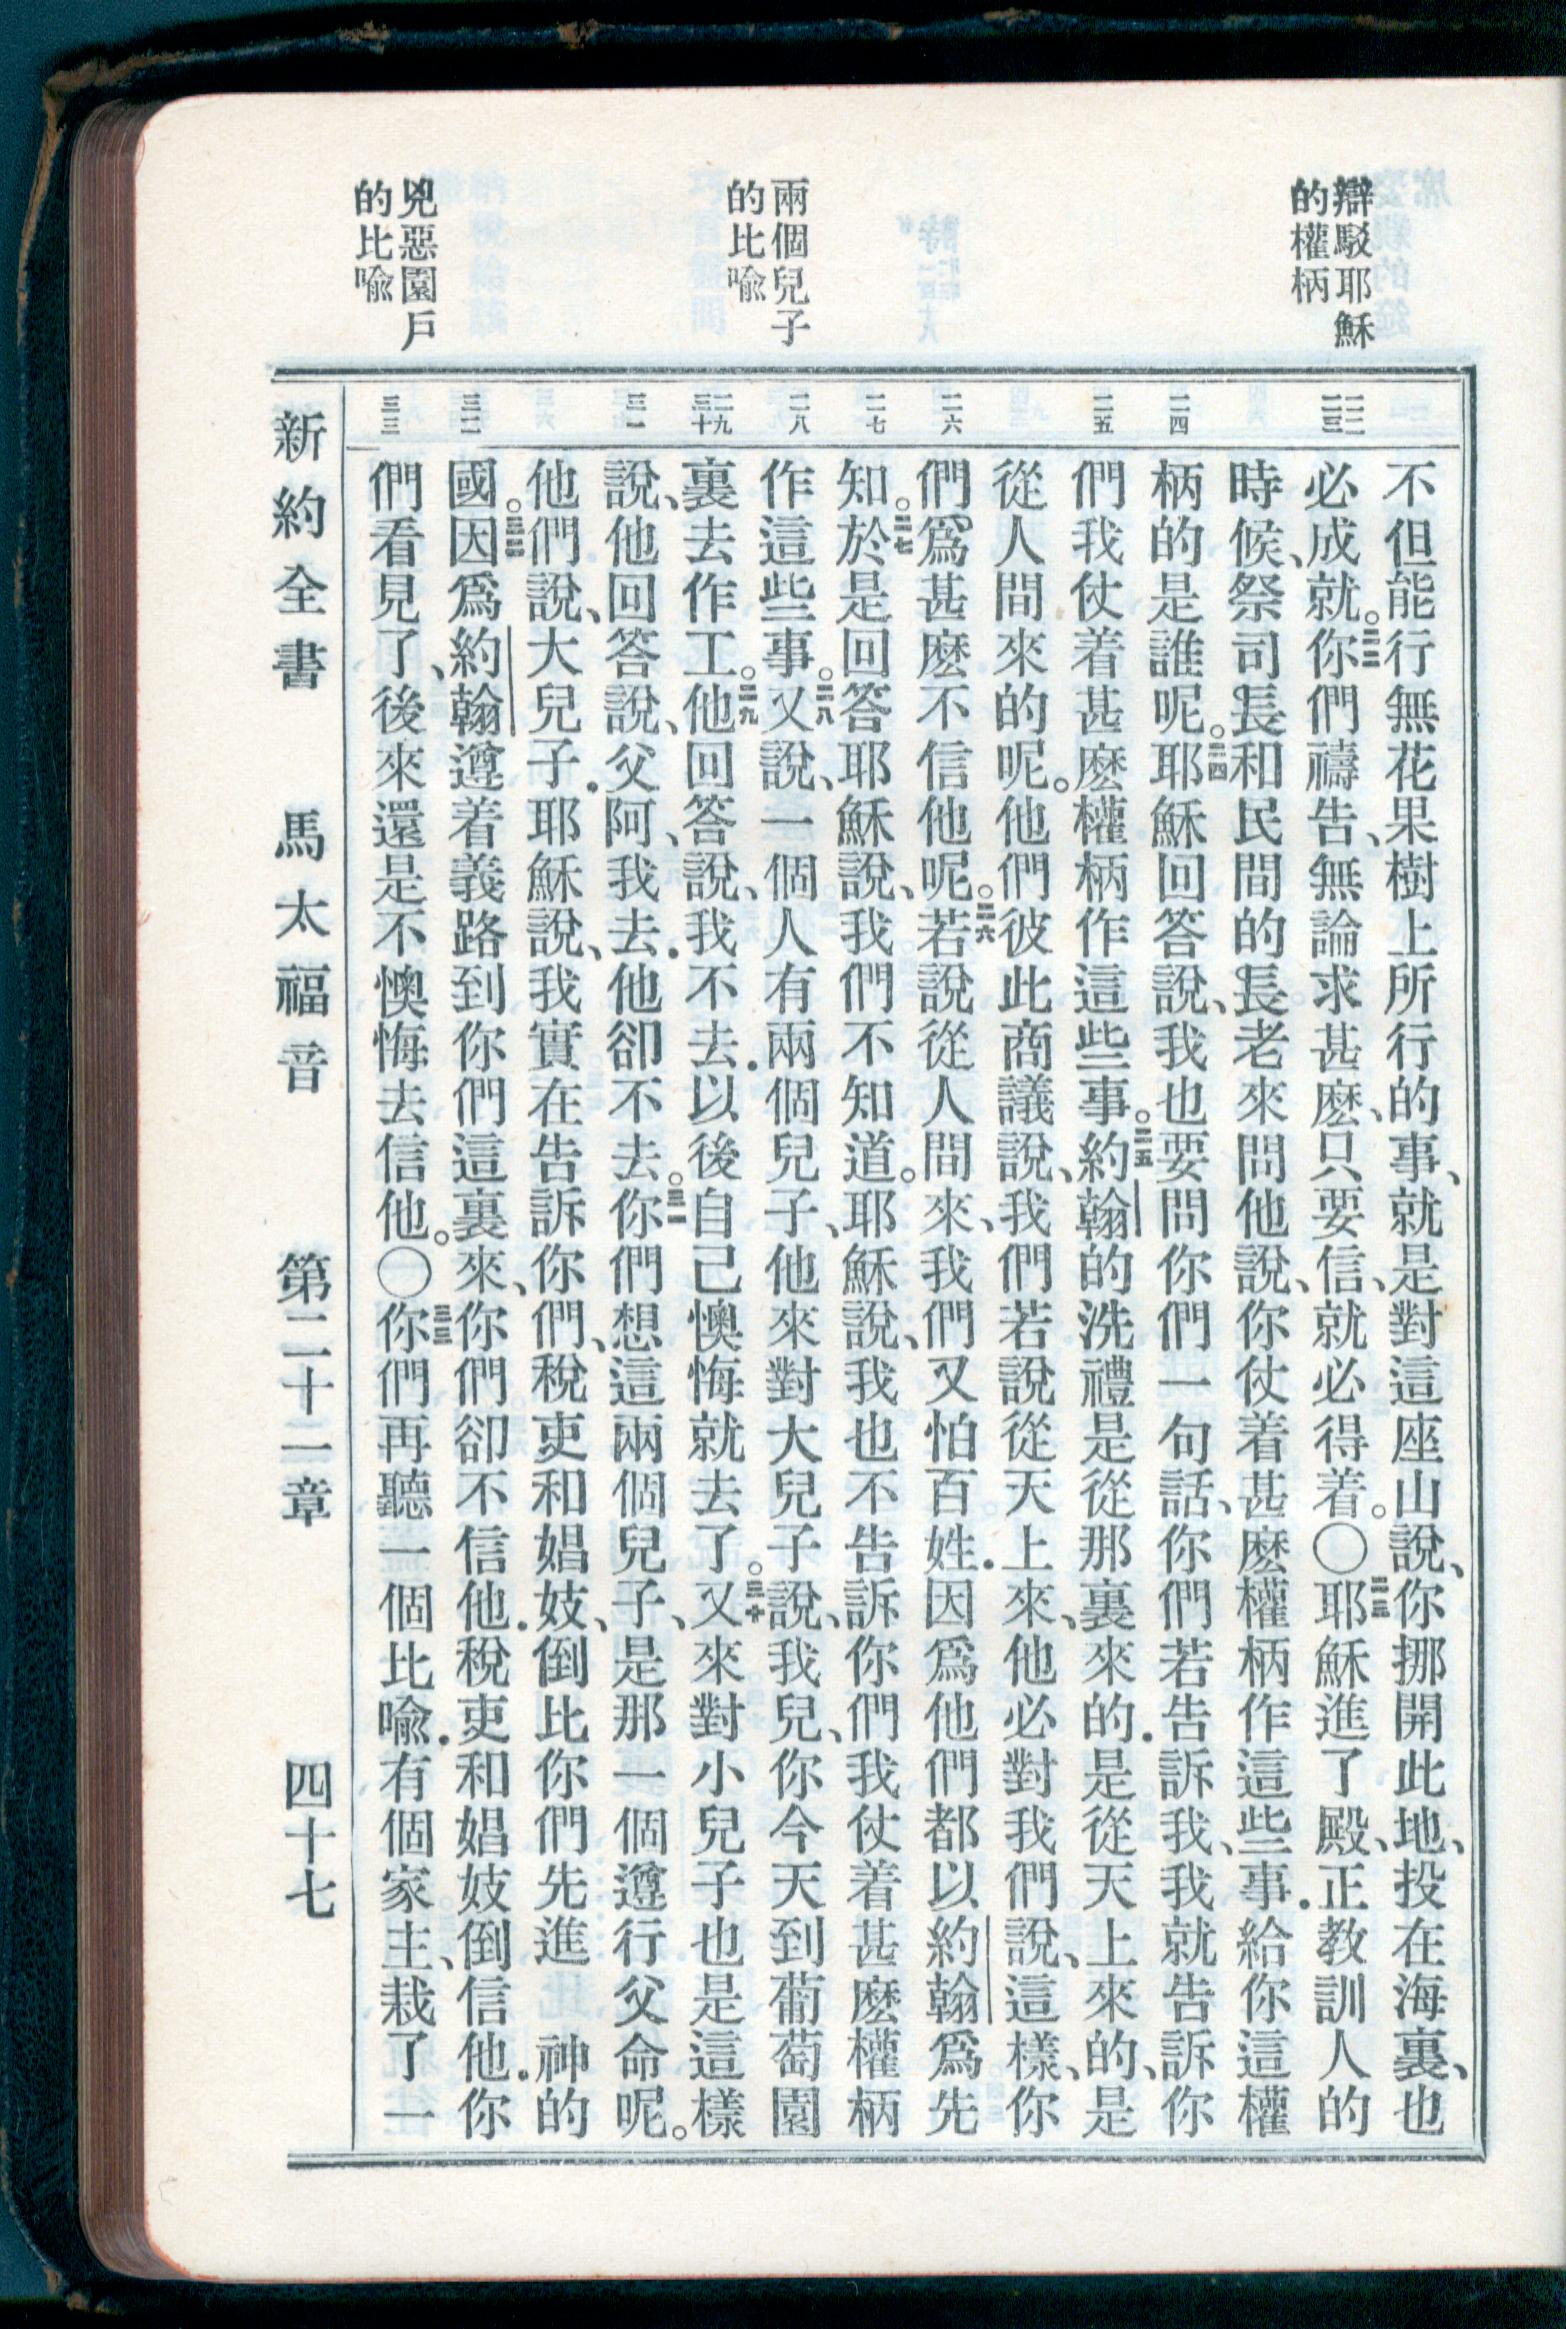 辯駁耶穌
的權柄
兩個兒子
的比喩
兇惡園戶
的比喩
二二
二三
二四
二五
二六
二七
二八
二九
三十
三一
三二
三三
不但能行無花果樹上所行的事、就是對這座山說、你挪開此地、投在海裏、也
必成就。二二你們禱告、無論求甚麽、只要信、就必得着。〇二三耶穌進了殿、正教訓人的
時候、祭司長和民間的長老來問他說、你仗着甚麽權柄作這些事.給你這權
柄的是誰呢。二四耶穌回答說、我也要問你們一句話、你們若告訴我、我就告訴你
們我仗着甚麽權柄作這些事。二五約翰的洗禮是從那裏來的.是從天上來的、是
從人間來的呢。他們彼此商議說、我們若說從天上來、他必對我們說、這樣、你
們爲甚麽不信他呢。二六若說從人間來、我們又怕百姓.因爲他們都以約翰爲先
知。二七於是回答耶穌說、我們不知道。耶穌說、我也不告訴你們我仗着甚麽權柄
作這些事。二八又說、一個人有兩個兒子、他來對大兒子說、我兒、你今天到葡萄園
裏去作工。二九他回答說、我不去.以後自己懊悔就去了。三十又來對小兒子也是這樣
說、他回答說、父阿、我去.他卻不去。三一你們想這兩個兒子、是那一個遵行父命呢。
他們說、大兒子.耶穌說、我實在告訴你們、稅吏和娼妓、倒比你們先進　神的
國。三二因爲約翰遵着義路到你們這裏來、你們卻不信他.稅吏和娼妓倒信他.你
們看見了、後來還是不懊悔去信他。〇三三你們再聽一個比喩.有個家主、栽了一
新約全書　馬太福音　第二十一章　四十七